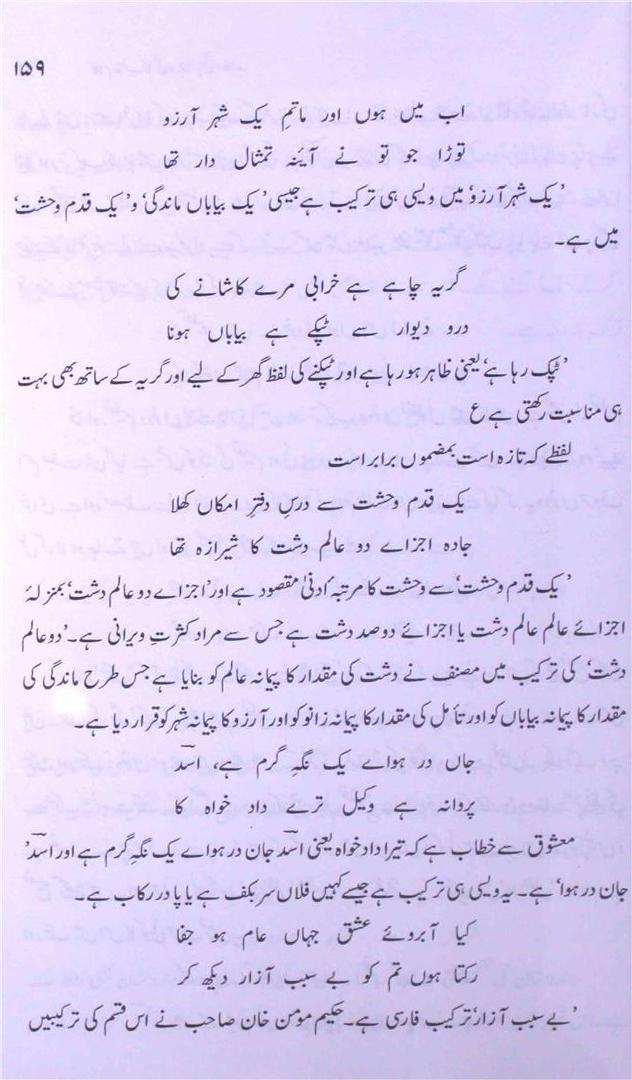 ۱۵۹
اب میں ہوں اور ماتمِ یک شہر آرزو
توڑا جو تو نے آینہ تمثال دار تھا
'یک شہر آرزو' میں ویسی ہی ترکیب ہے جیسی 'یک بیاباں ماندگی' و 'یک قدم وحشت'
میں ہے۔
گریہ چاہے ہے خرابی مرے کاشانے کی
درو دیوار سے ٹپکے ہے بیاباں ہونا
'ٹپک رہا ہے' یعنی ظاہر ہو رہا ہے اور ٹپکنے کی لفظ گھر کے لیے اور گریہ کے ساتھ بھی بہت
ہی مناسبت رکھتی ہے ع
لفظے کہ تازہ است بمضموں برابر است
یک قدم وحشت سے درسِ دفترِ امکاں کھلا
جادہ اجزاے دو عالم دشت کا شیرازہ تھا
'یک قدم وحشت' سے وحشت کا مرتبۂ ادنیٰ مقصود ہے اور 'اجزاے دو عالم دشت' بمنزلۂ
اجزائے عالم عالم دشت یا اجزائے دو صد دشت ہے جس سے مراد کثرتِ ویرانی ہے۔ 'دو عالم
دشت' کی ترکیب میں مصنف نے دشت کی مقدار کا پیمانہ عالم کو بنایا ہے جس طرح ماندگی کی
مقدار کا پیمانہ بیاباں کو اور تأمل کی مقدار کا پیمانہ زانو کو اور آرزو کا پیمانہ شہر کو قرار دیا ہے۔
جاں در ہواے یک نگہِ گرم ہے، اسدؔ
پروانہ ہے وکیل ترے داد خواہ کا
معشوق سے خطاب ہے کہ تیرا داد خواہ یعنی اسدؔ جان در ہواے یک نگہِ گرم ہے اور اسدؔ
جان در ہوا' ہے۔ یہ ویسی ہی ترکیب ہے جیسے کہیں فلاں سر بکف ہے یا پا در رکاب ہے۔
کیا آبروئے عشق جہاں عام ہو جفا
رکتا ہوں تم کو بے سبب آزار دیکھ کر
'بے سبب آزار' ترکیب فارسی ہے۔ حکیم مومن خان صاحب نے اس قسم کی ترکیبیں